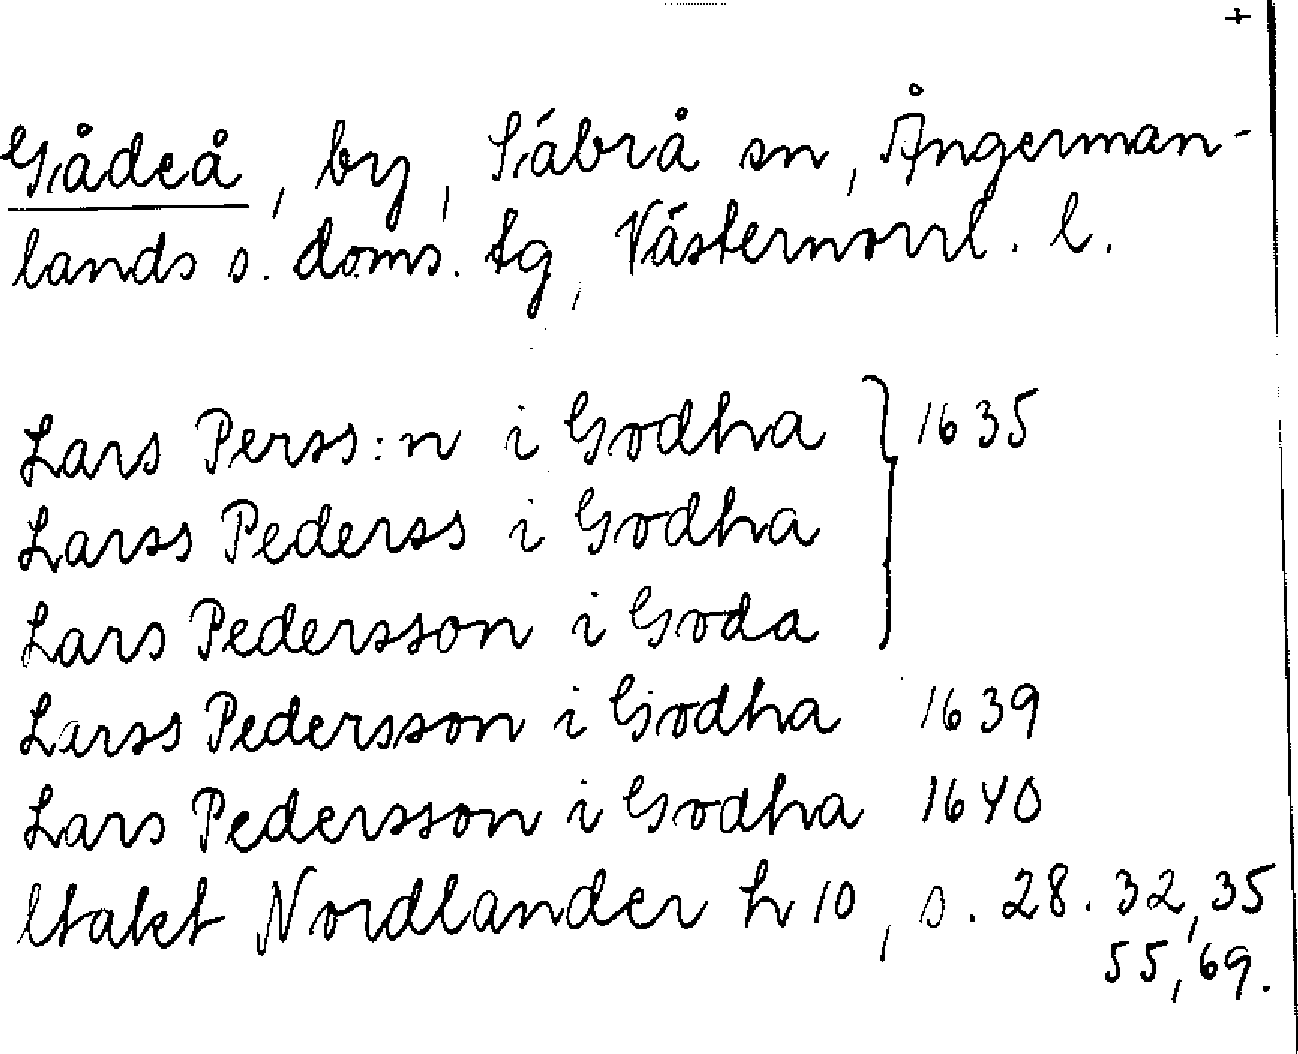 +
Gådeå, by, Säbrå sn, Ångerman-
lands s. doms. tg, Västernorrl. l.
Lars Perss:n i Godha } 1635
Larss Pederss i Godha
Lars Pedersson i Goda
Larss Pedersson i Godha 1639
Lars Pedersson i Godha 1640
Utakt Nordlander h 10, s. 28. 32, 35
55, 69.